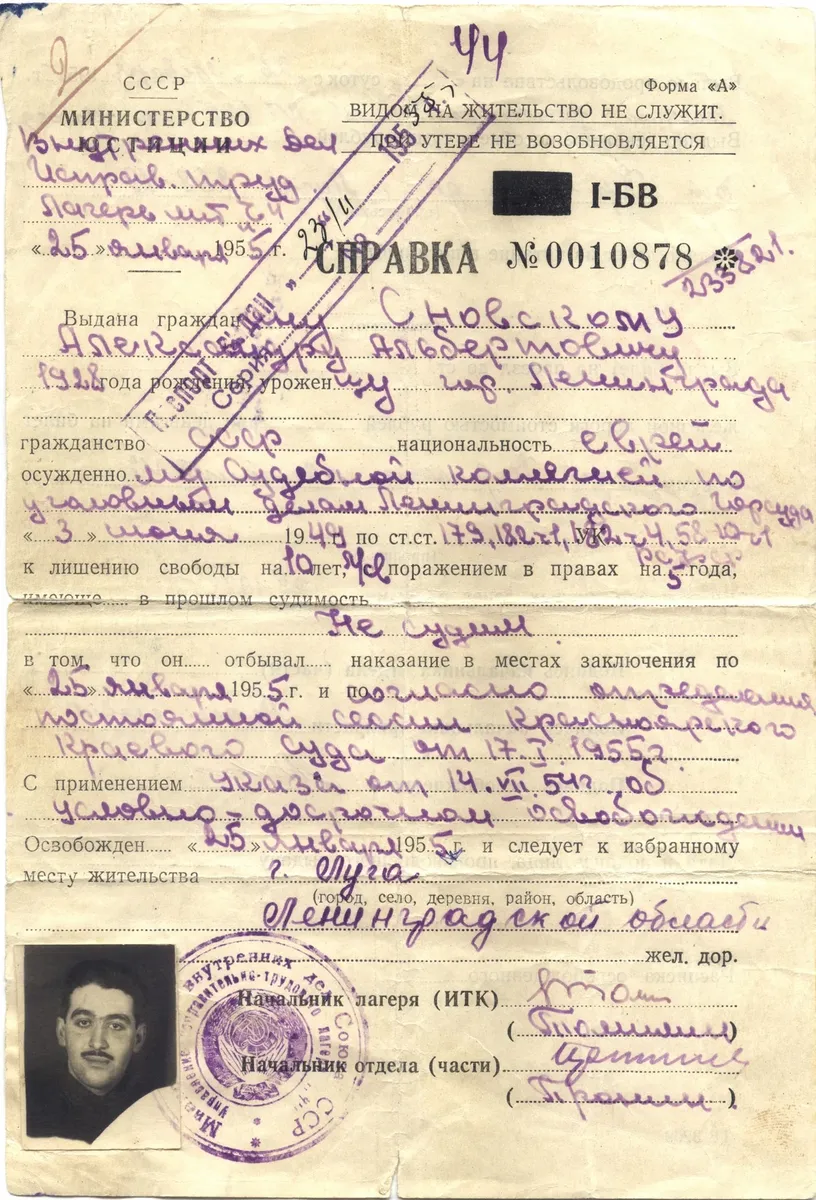 2
44
СССР
Форма «А»
МИНИСТЕРСТВО
ЮСТИЦИИ
Внутренних дел
ВИДОМ НА ЖИТЕЛЬСТВО НЕ СЛУЖИТ.
ПРИ УТЕРЕ НЕ ВОЗОБНОВЛЯЕТСЯ
Исправ. труд.
Лагерь
I-БВ
«25» января 1955 г.
СПРАВКА № 0010878
233821.
ПАСПОРТ ВЫДАН
Серия
23/II 1955 г.
Выдана гражданину Сновскому
Александру Альбертовичу
1928 года рождения, уроженцу гор. Ленинграда
гражданство СССР национальность еврей
осужденному Судебной коллегией по
уголовным делам Ленинградского Горсуда
«3» июня 1949 г. по ст.ст. 179, 182 ч 1, 182 ч 4, 58-10 ч 1 УК
РСФСР
к лишению свободы на 10 лет, с поражением в правах на 5 года,
имеюще в прошлом судимость
Не судим
в том, что он отбывал наказание в местах заключения по
«25» января 1955 г. и по согласно определения
постоянной сессии Красноярского
Краевого суда от 17.I.1955 г
С применением указа от 14.VII.54 г. об
условно-досрочном освобождении
Освобожден «25» января 1955 г. и следует к избранному
месту жительства г. Луга
(город, село, деревня, район, область)
Ленинградской области
жел. дор.
Начальник лагеря (ИТК)
Начальник отдела (части)
(Пронин)